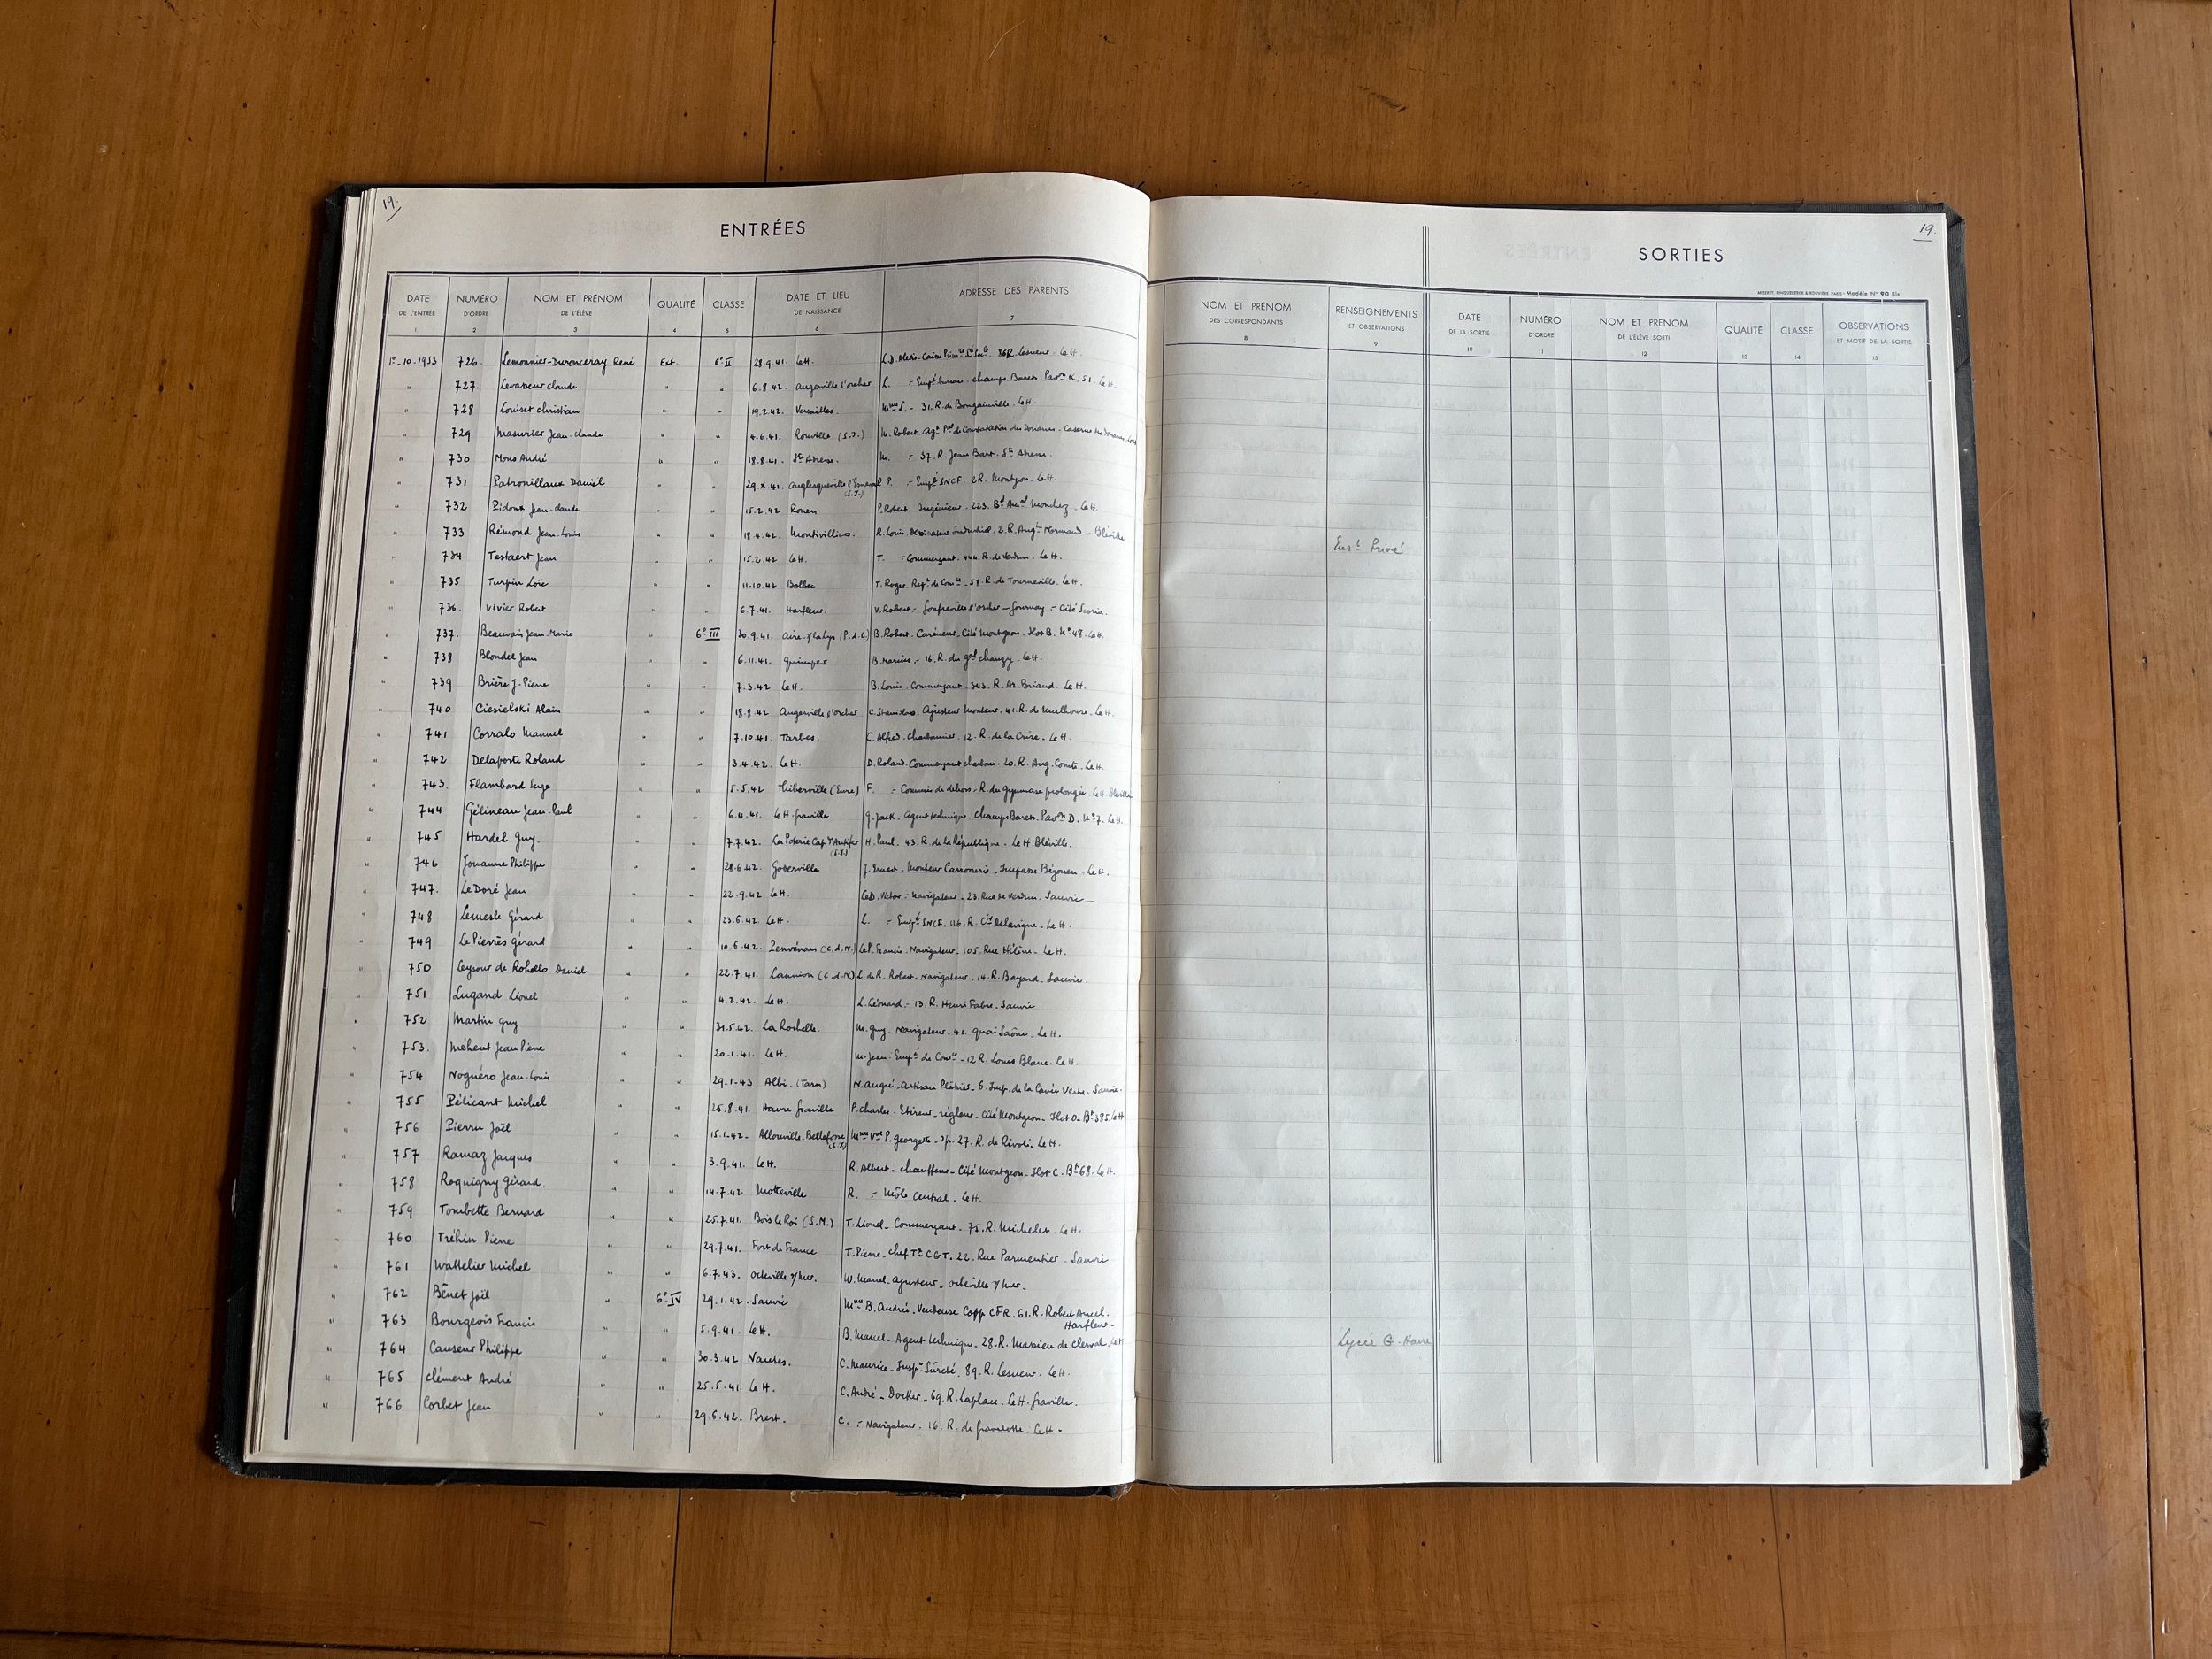 19.
ENTRÉES
DATE DE L'ENTRÉE 1 NUMÉRO D'ORDRE 2 NOM ET PRÉNOM DE L'ÉLÈVE 3 QUALITÉ 4 CLASSE 5 DATE ET LIEU DE NAISSANCE 6 ADRESSE DES PARENTS 7
1er-10-1953 726. Lemonnier-Duronceray René Ext. 6e II 28.9.41. Le H. 86 R. Lesueur. Le H.
" 727. Levasseur Claude " " 6.8.42. Angerville l'orcher L. Champs Barets. Pavon K. 51. Le H.
" 728 Louiset Christian " " 19.2.42. Versailles. Mme L. - 31. R. de Bougainville. Le H.
" 729 Masurier Jean-Claude " " 4.6.41. Rouville (S.I.) M. Robert. Agt Pal de Constatation des Douanes. Caserne des Douanes.
" 730 Mons André " " 18.8.41. Ste Adresse. M. = 37. R. Jean Bart. Ste Adresse.
" 731 Patronillaux Daniel " " 29.X.41. Anglesqueville l'Esneval (S.I.) P. = Empé SNCF. 2 R. Montyon. Le H.
" 732 Pidoux Jean-Claude " " 15.2.42 Rouen P. Robert. Ingénieur. 223. Bd Amal Mouchez. Le H.
" 733 Rémond Jean-Louis " " 18.4.42. Montivilliers. R. Louis Dessinateur Industriel. 2. R. Augtin Normand - Bléville
" 734 Testaert Jean " " 15.2.42 Le H. T. = Commerçant. 444. R. de Verdun. Le H.
" 735 Turpin Loïc " " 11.10.42 Bolbec T. Roger. Rept de Comce. 58. R. de Tourneville. Le H.
" 736. Vivier Robert " " 6.7.41. Harfleur. V. Robert. Gonfreville l'orcher - Gournay - Cité Scoria.
" 737. Beauvais Jean-Marie " 6e III 30.9.41. Aire s/la Lys (P.d.C) B. Robert. Caréneur. Cité Montgeon. Ilot B. No 48. Le H.
" 738 Blondel Jean " " 6.11.41. Quimper B. Marius. 16. R. du Gal Chanzy. Le H.
" 739 Brière J. Pierre " " 7.3.42 Le H. B. Louis. Commerçant. 343. R. Ar. Briand. Le H.
" 740 Ciesielski Alain " " 18.8.42 Angerville l'orcher C. Stanislas. Ajusteur Monteur. 41. R. de Mulhouse. Le H.
" 741 Corralo Manuel " " 7.10.41. Tarbes. C. Alfred. Charbonnier. 12. R. de la Crise. Le H.
" 742 Delaporte Roland " " 3.4.42. Le H. D. Roland. Commerçant charbon. 20. R. Aug. Comte. Le H.
" 743. Flambard Serge " " 5.5.42 Thiberville (Eure) F. = Commis de dehors. R. du Gymnase prolongée. Le H. Bléville
" 744 Gélineau Jean-Paul " " 6.4.41. Le H. Graville G. Jack. Agent technique. Champs Barets. Pavon D. No 7. Le H.
" 745 Hardel Guy. " " 7.7.42. La Poterie Cap d'Antifer (S.I.) H. Paul. 43. R. de la République. Le H. Bléville.
" 746 Jouanne Philippe " " 28.6.42. Goderville J. Ernest. Monteur Carrosserie. Impasse Bégouen. Le H.
" 747. Le Doré Jean " " 22.9.42 Le H. Le D. Victor = Navigateur. 23. Rue de Verdun. Sanvic
" 748 Lemesle Gérard " " 23.6.42. Le H. L. = Empé SNCF. 116. R. Cir Delavigne. Le H.
" 749 Le Pierrès Gérard " " 10.6.42. Penvénan (C.d.N.) Le P. Francis. Navigateur. 105. Rue Hélène. Le H.
" 750 Leysour de Rohello Daniel " " 22.7.41. Lannion (C.d.N) L. de R. Robert. Navigateur. 14. R. Bayard. Sanvic.
" 751 Lugand Lionel " " 4.2.42. Le H. L. Léonard. 13. R. Henri Fabre. Sanvic
" 752 Martin Guy " " 31.5.42. La Rochelle. M. Guy. Navigateur. 41. Quai Saône. Le H.
" 753. Méheut Jean Pierre " " 20.1.41. Le H. M. Jean. Empé de Comce. 12 R. Louis Blanc. Le H.
" 754 Noguéro Jean-Louis " " 29.1.43 Albi. (Tarn) N. André. Artisan Plâtrier. 6. Imp. de la Cavée Verte. Sanvic.
" 755 Pélicant Michel " " 25.8.41. Havre Graville P. Charles. Etireur-régleur. Cité Montgeon. Ilot O. Bt 385 Le H.
" 756 Pierru Joël " " 15.1.42. Allouville-Bellefosse (S.I) Mme Vve P. Georgette. S/p. 27. R. de Rivoli. Le H.
" 757 Ramaz Jacques " " 3.9.41. Le H. R. Albert. Chauffeur. Cité Montgeon. Ilot C. Bt 68. Le H.
" 758 Roquigny Gérard. " " 14.7.42 Motteville R. = Môle Central. Le H.
" 759 Tombette Bernard " " 25.7.41. Bois le Roi (S.M.) T. Lionel. Commerçant. 75. R. Michelet. Le H.
" 760 Tréhin Pierre " " 29.7.41. Fort de France T. Pierre. Chef Te CGT. 22. Rue Parmentier. Sanvic
" 761 Wattelier Michel " " 6.7.43. Octeville s/mer. W. Marcel. Ajusteur. Octeville s/mer.
" 762 Bénet Joël " 6e IV 29.1.42. Sanvic Mme B. Andrée. Vendeuse Copp CFR. 61. R. Robert Ancel. Harfleur.
" 763 Bourgeois Francis " " 5.9.41. Le H. B. Marcel. Agent technique. 28. R. Massieu de Clerval. Le H
" 764 Causeur Philippe " " 30.3.42 Nantes. C. Maurice. Inspr Sûreté. 89. R. Lesueur. Le H.
" 765 Clément André " " 25.5.41. Le H. C. André. Docker. 69. R. Laplace. Le H. Graville.
" 766 Corbet Jean " " 29.6.42. Brest. C. = Navigateur. 16. R. de Gravelotte. Le H.
19.
SORTIES
MODÈLE N° 90 Bis
NOM ET PRÉNOM DES CORRESPONDANTS 8 RENSEIGNEMENTS ET OBSERVATIONS 9 DATE DE LA SORTIE 10 NUMÉRO D'ORDRE 11 NOM ET PRÉNOM DE L'ÉLÈVE SORTI 12 QUALITÉ 13 CLASSE 14 OBSERVATIONS ET MOTIF DE LA SORTIE 15
Enst Privé
Lycée G. Havre